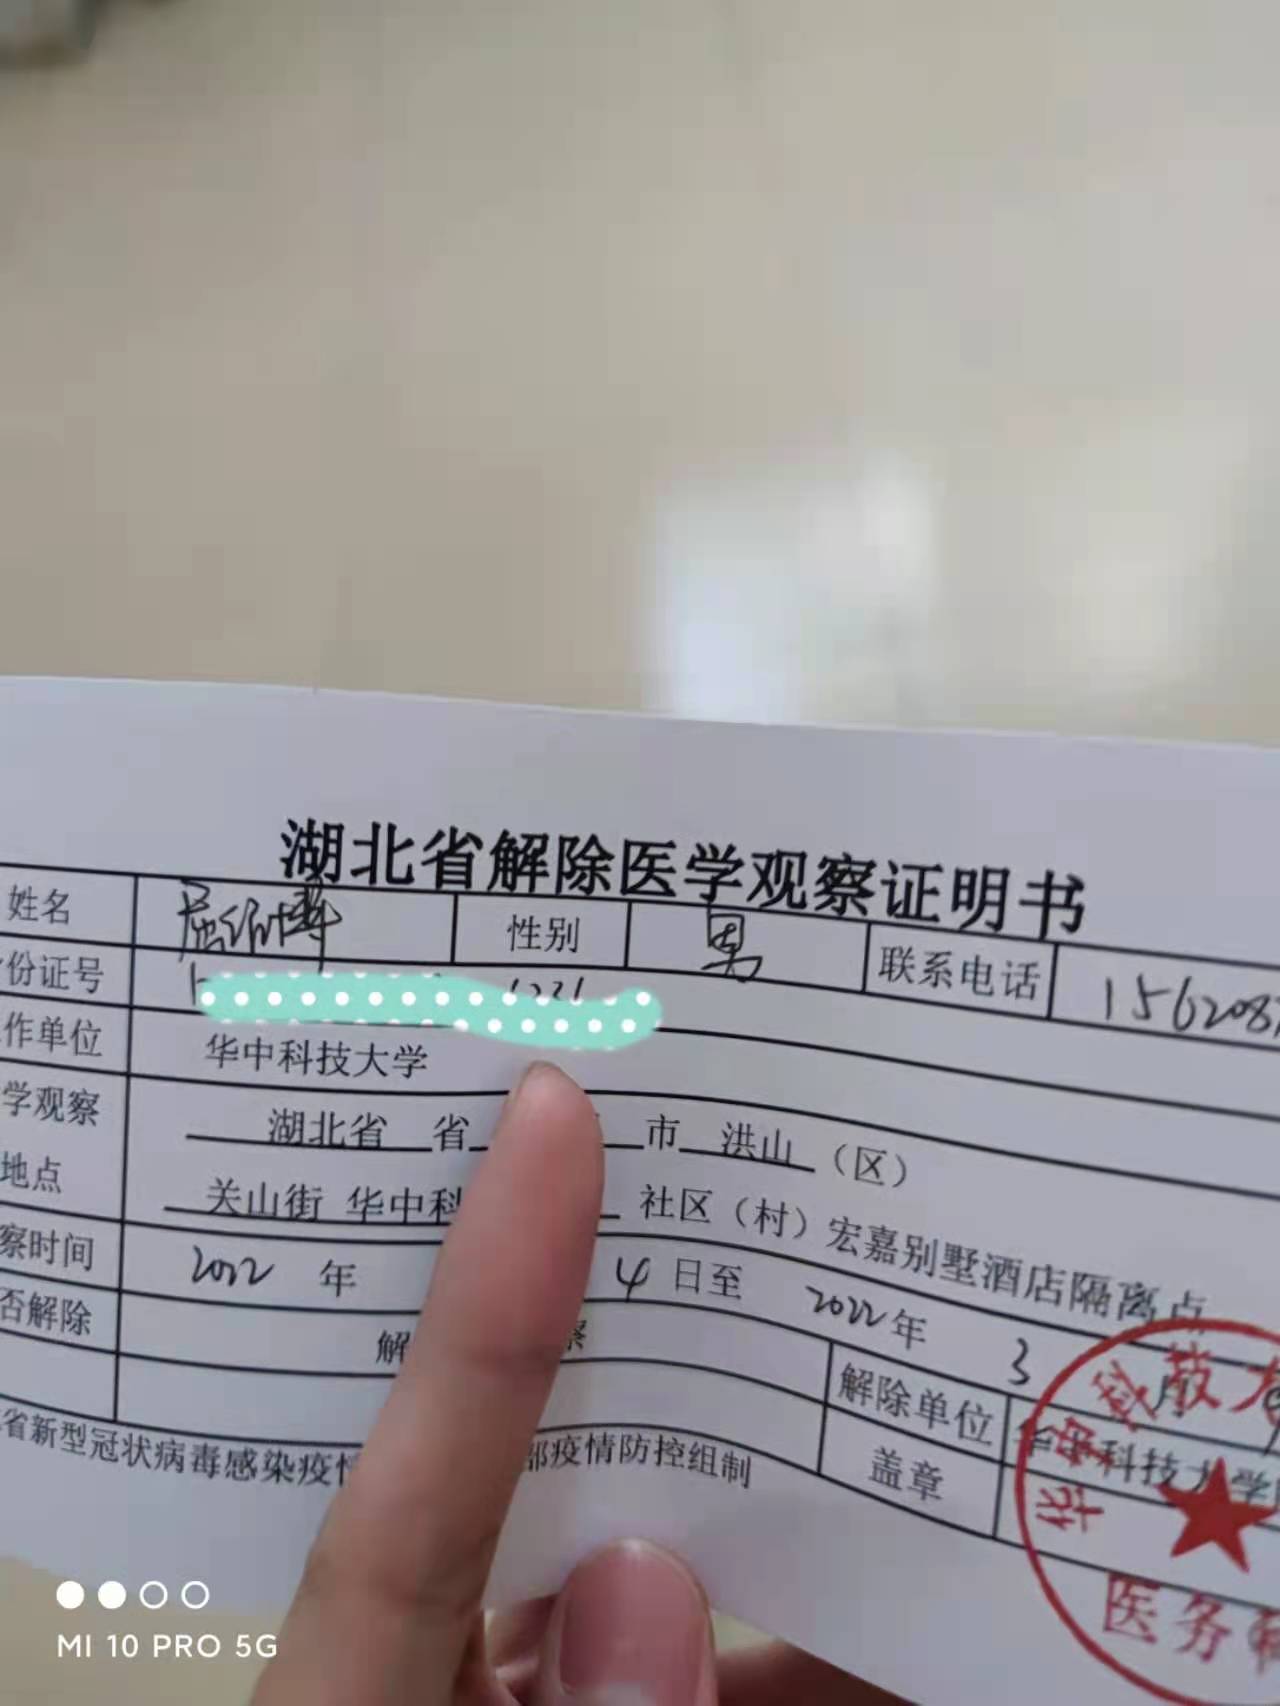 湖北省解除医学观察证明书
姓名 性别 男 联系电话 156208
份证号
作单位 华中科技大学
学观察 湖北省 省 市 洪山 （区）
地点 关山街 华中科 社区（村）宏嘉别墅酒店隔离点
察时间 2022 年 4 日至 2022 年 3 月
否解除 解 察 解除单位 华中科技大学
盖章
省新型冠状病毒感染疫情 部疫情防控组制
华中科技大
医务
MI 10 PRO 5G